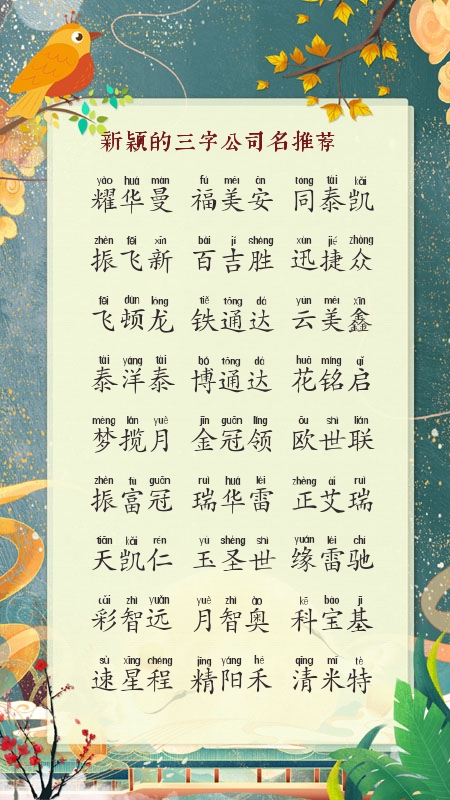 新颖的三字公司名推荐
yào huá màn fú měi ān tóng tài kǎi
耀华曼 福美安 同泰凯
zhèn fēi xīn bǎi jí shèng xùn jié zhòng
振飞新 百吉胜 迅捷众
fēi dùn lóng tiě tōng dá yún měi xīn
飞顿龙 铁通达 云美鑫
tài yáng tài bó tōng dá huā míng qǐ
泰洋泰 博通达 花铭启
mèng lǎn yuè jīn guān lǐng ōu shì lián
梦揽月 金冠领 欧世联
zhèn fù guān ruì huá léi zhèng ài ruì
振富冠 瑞华雷 正艾瑞
tiān kǎi rén yù shèng shì yuán léi chí
天凯仁 玉圣世 缘雷驰
cǎi zhì yuǎn yuè zhì ào kē bǎo jī
彩智远 月智奥 科宝基
sù xīng chéng jīng yáng hé qīng mǐ tè
速星程 精阳禾 清米特